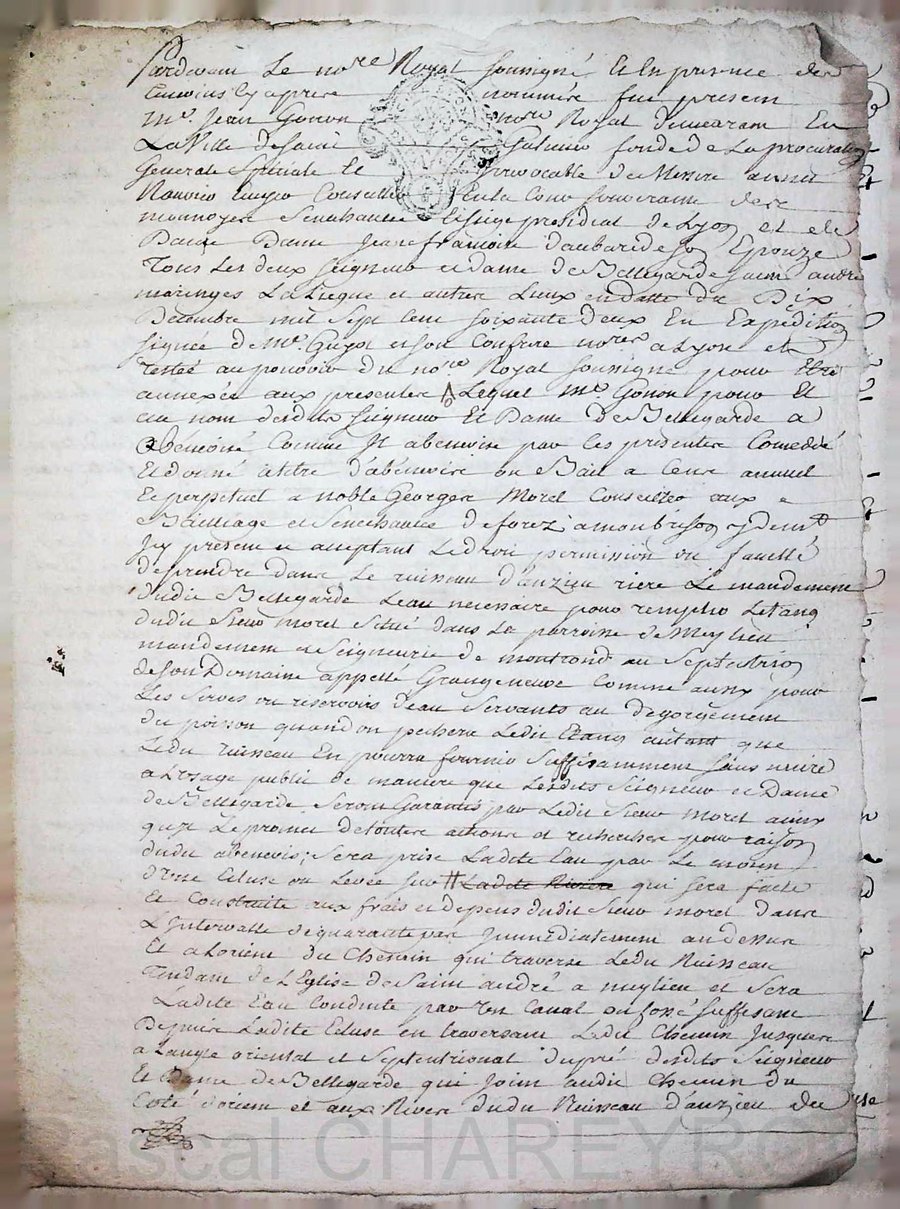 Pardevant Le no.re Royal soussigné Et En presence des
temoins Cy apres nommés fut present
M.e Jean Gonon no.re Royal demeurant En
La Ville de Saint Galmier fondé de La procuration
Generale Speciale Et irrevocable de Messire
Conseiller En la Cour Souveraine des
monnoyes Senechaussée Et siege presidial de Lyon et de
Dame Jeanne francoise daubarede son Epouze
Tous Les deux seigneur et dame de Bellegarde saint andré
maringes La Liegue et autres Lieux en datte du Dix
Decembre mil Sept Cent soixante deux En Expedition
signée de M.e Guyot et son Confrere no.res a Lyon et
restée au pouvoir du no.re Royal soussigné pour Etre
annexée aux presentes Lequel M.e Gonon pour Et
au nom desdits seigneur Et Dame de Bellegarde a
abenevisé Comme Il abenevise par Ces presentes Concedé
Et donné a titre d'abenevis ou Bail a Cens annuel
Et perpetuel a noble Georges Morel Conseiller aux
Bailliage et Senechaussée de forez a montbrison y dem.t
Icy present et acceptant Le droit permission ou faculté
de prendre dans Le ruisseau d'anzieu riere Le mandement
dudit Bellegarde Leau necessaire pour remplir Letang
dudit Sieur morel Situé dans La parroisse de Meylieu
mandement et Seigneurie de montrond au Septentrion
de son Domaine appellé Grangeneuve Comme aussi pour
Les Serves ou reservoirs d'eau Servants au degorgement
du poisson quand on pechera Ledit Etang autant que
Ledit ruisseau En pourra fournir suffisamment sans nuire
a Lusage public de maniere que Lesdits Seigneur et Dame
de Bellegarde Seront Garantis par Ledit Sieur morel ainsi
quil Le promet de toutes actions et recherches pour raison
dudit abenevis; Sera prise Ladite Eau par Le moyen
d'une Ecluse ou Levée sur # Ladite Riviere qui sera faite
Et Construite aux frais et depens dudit Sieur morel dans
L'Intervalle de quarante pas Immediatement au dessus
Et a Lorient du Chemin qui traverse Ledit Ruisseau
Tendant de L'Eglise de Saint andré a meylieu et Sera
Ladite Eau Conduite par un Canal ou fossé suffisant
Depuis Ladite Ecluse en traversant Ledit Chemin Jusques
a Langle oriental et Septentrional du pré desdits Seigneur
Et Dame de Bellegarde qui Joint audit Chemin du
Coté d'orient et aux Rives dudit Ruisseau d'anzieu de
Pascal CHAREYRON